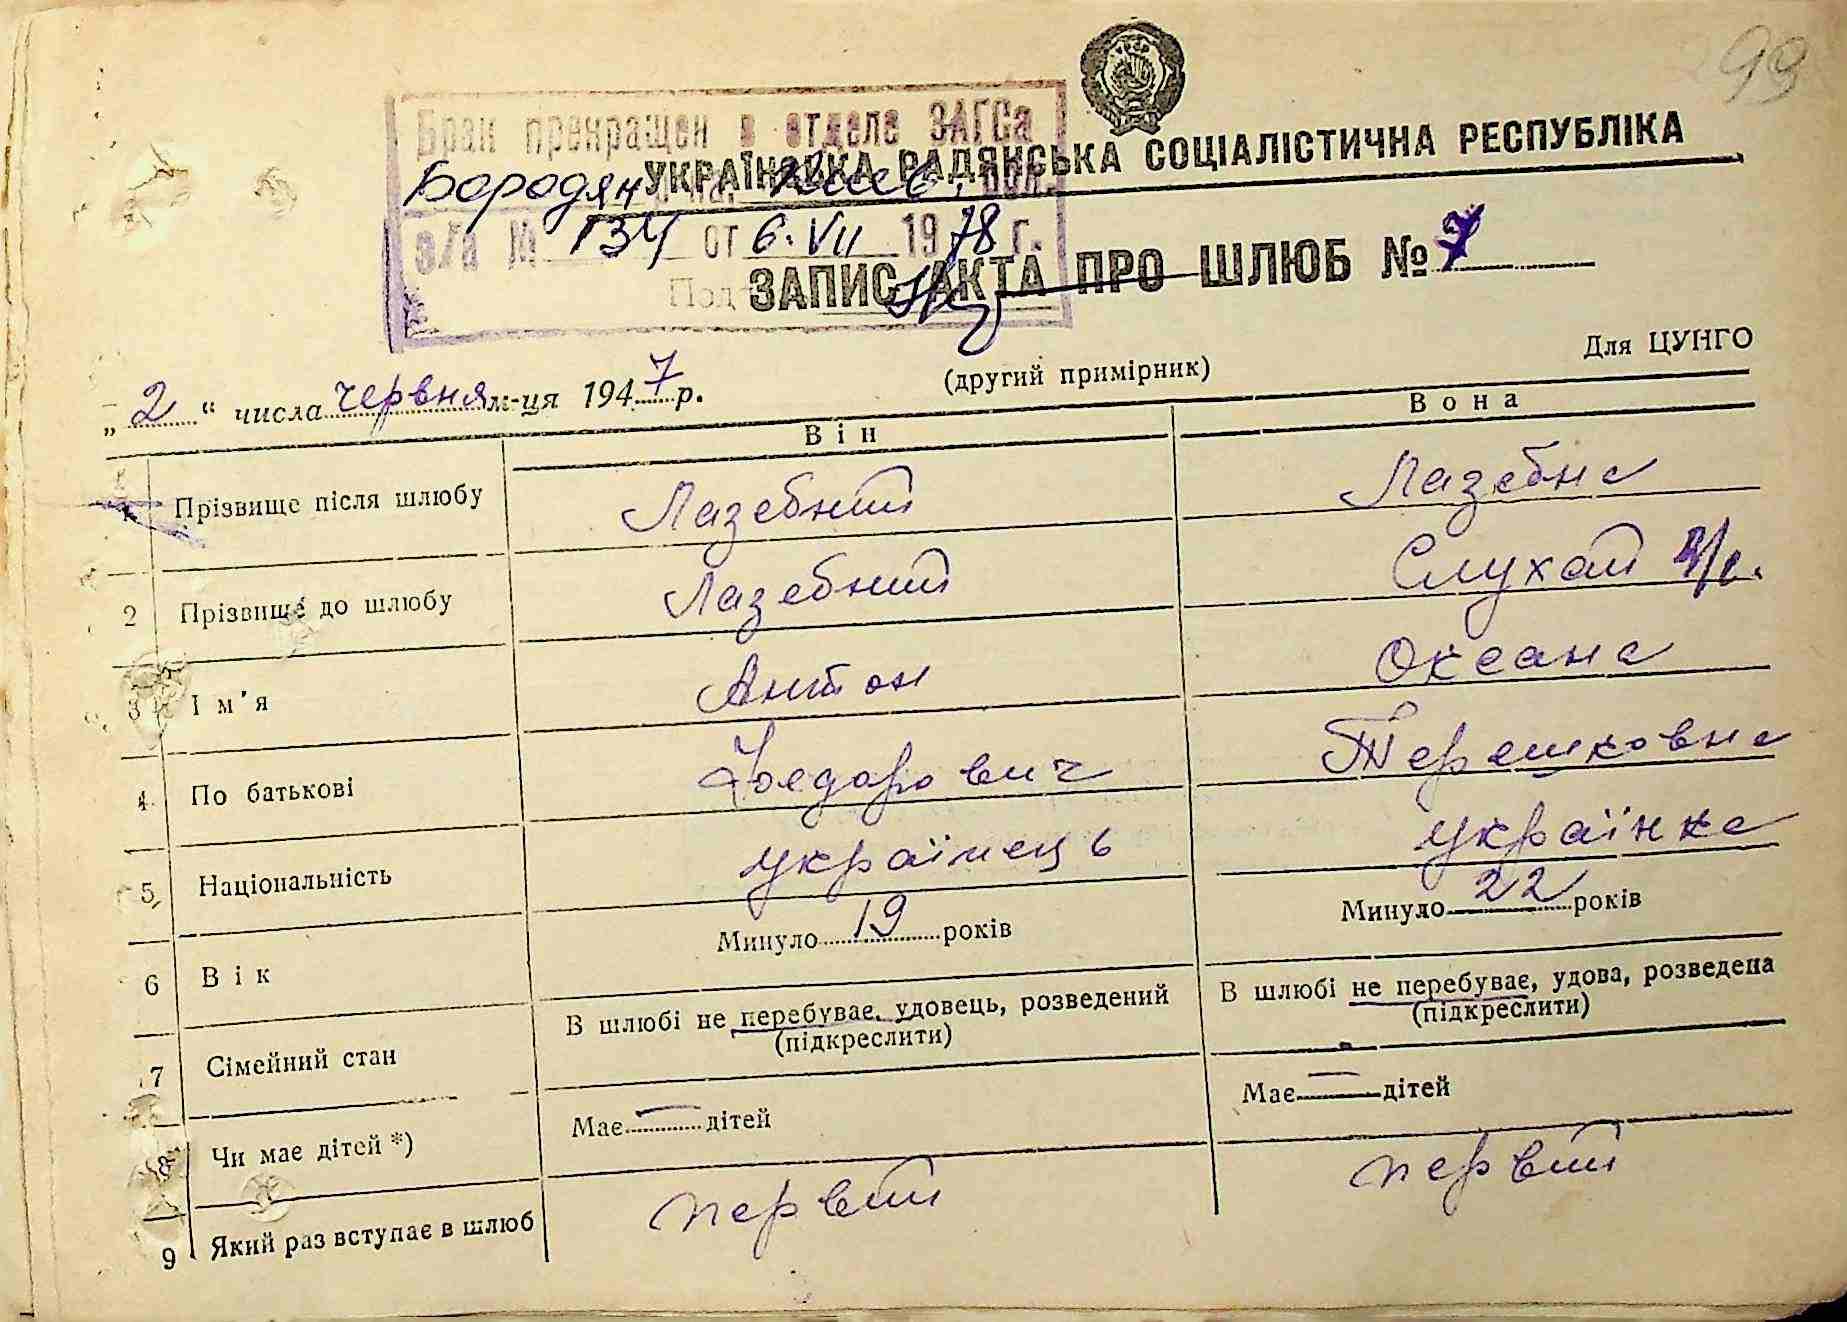 99
Брак прекращен в отделе ЗАГСа
УКРАЇНСЬКА РАДЯНСЬКА СОЦІАЛІСТИЧНА РЕСПУБЛІКА
Бородян на. Киев. обл.
з/а № 134 от 6. VII 1978 г.
ЗАПИС АКТА ПРО ШЛЮБ № 7
Под
(другий примірник)
Для ЦУНГО
„2“ числа червня м-ця 1947 р.
Він
Вона
1 Прізвище після шлюбу Лазебний Лазебна
2 Прізвище до шлюбу Лазебний Слухай
3 Ім'я Антон Океана
4 По батькові Федорович Терешковна
5 Національність українець українка
6 Вік Минуло 19 років Минуло 22 років
7 Сімейний стан В шлюбі не перебуває, удовець, розведений В шлюбі не перебуває, удова, розведена
(підкреслити) (підкреслити)
8 Чи має дітей *) Має — дітей Має — дітей
9 Який раз вступає в шлюб первий первий